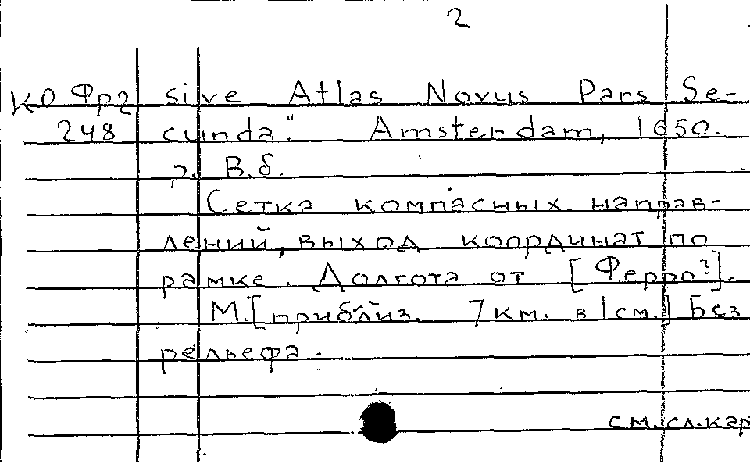 2
КО Фр2 sive Atlas Novus Pars Se-
248 cunda". Amsterdam, 1650.
р. В.б.
Сетка компасных направ-
лений, выход координат по
рамке. Долгота от [Ферро?].
М.[приблиз. 7км. в 1см.] Без
рельефа.
см.сл.кар